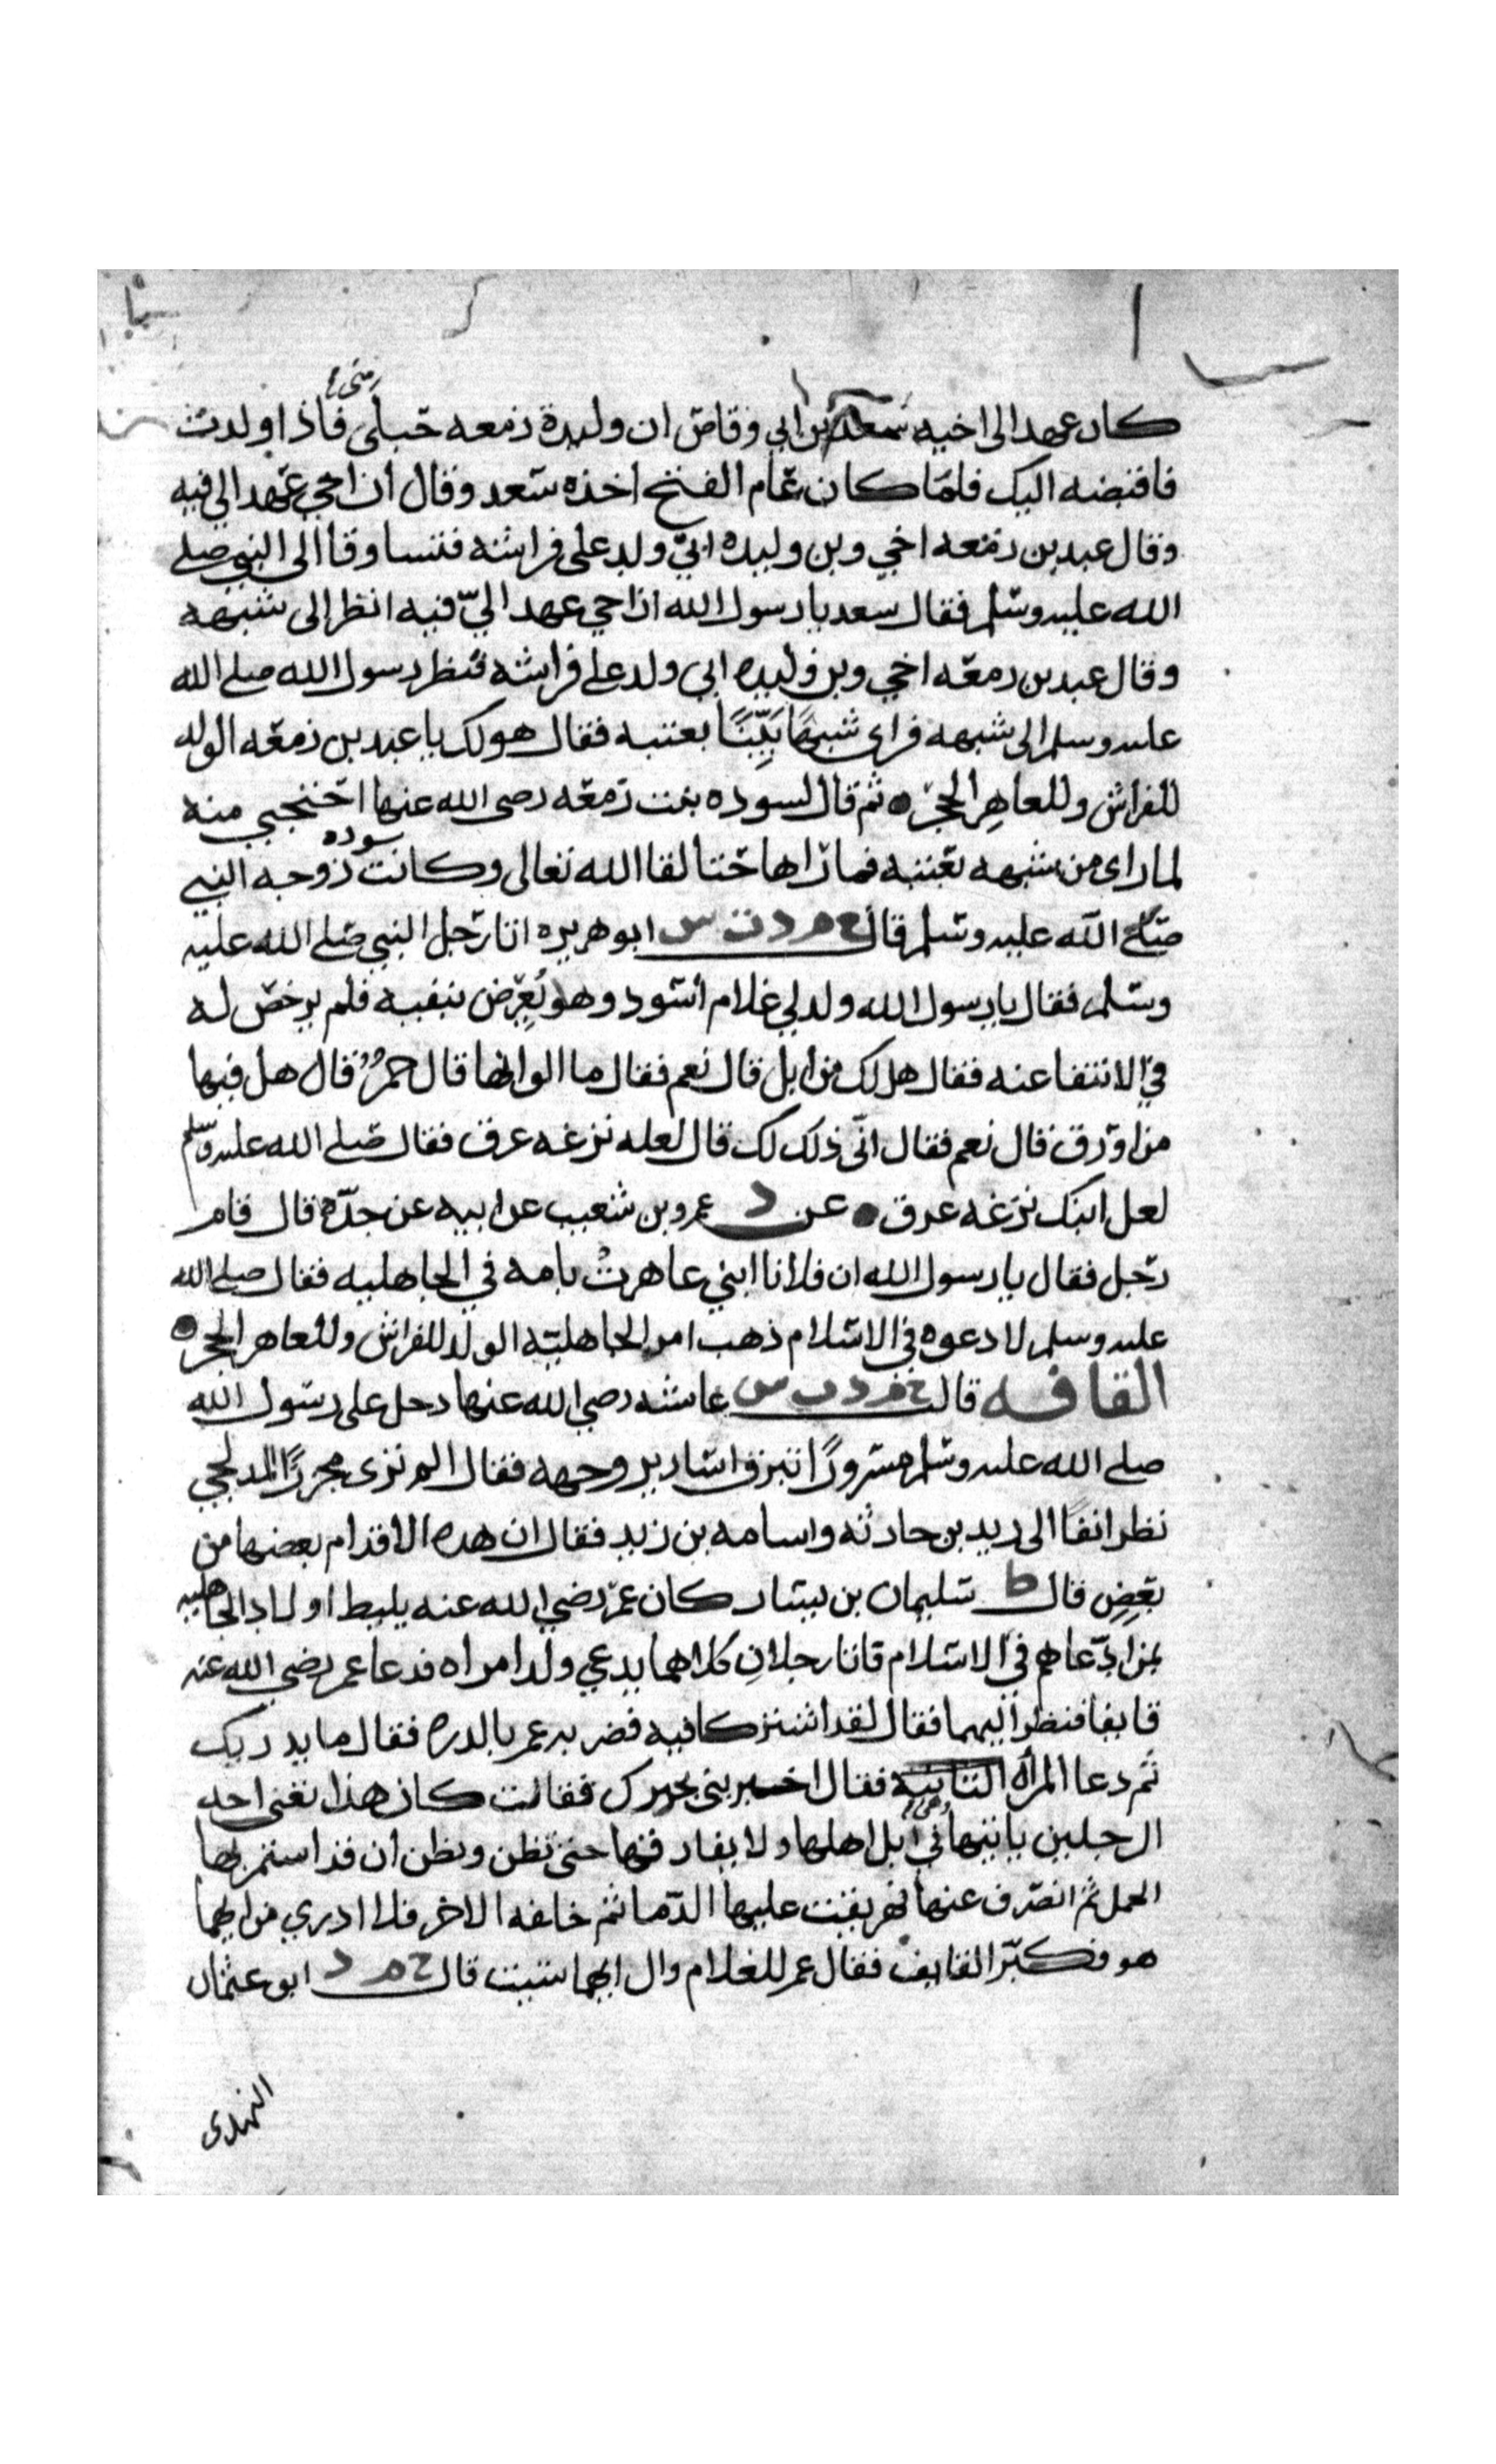 مني
كان عهد الى اخيه سعد بن ابي وقاص ان وليدة زمعه حبلى فاذا ولدت
فاقبضه اليك فلما كان عام الفتح اخذه سعد وقال ان اخي عهد الي فيه
وقال عبد بن زمعه اخي وبن وليده ابي ولد على فراشه فتساوقا الى النبي صلى
الله عليه وسلم فقال سعد يا رسول الله ان اخي عهد اليّ فيه انظر الى شبهه
وقال عبد بن زمعه اخي وبن وليده ابي ولد على فراشه فنظر رسول الله صلى الله
عليه وسلم الى شبهه فراى شبهًا بَيِّنًا بعتبه فقال هو لك يا عبد بن زمعه الولد
للفراش وللعاهِر الحجر ثم قال لسوده بنت زمعه رضى الله عنها احتجبي منه
لما راى من شبهه بعتبه فما راها حتا لقا الله تعالى وكانت سوده زوجه النبي
صلى الله عليه وسلم قال خ م د ت س ابو هريره اتا رجل النبي صلى الله عليه
وسلم فقال يا رسول الله ولد لي غلام أسود وهو يُعرِّض بنفيه فلم يرخص له
في الانتفا عنه فقال هل لك من ابل قال نعم فقال ما الوانها قال حمرٌ قال هل فيها
من اورق قال نعم فقال انّى ذلك لك قال لعله نزعه عرق فقال صلى الله عليه وسلم
لعل ابنك نزعه عرق عن د عمرو بن شعيب عن ابيه عن جدّه قال قام
رجل فقال يا رسول الله ان فلانا ابني عاهرتُ بامه في الجاهليه فقال صلى الله
عليه وسلم لا دعوه في الاسلام ذهب امر الجاهليّه الولد للفراش وللعاهر الحجر
القافه قالت خ م د ت س عائشه رضي الله عنها دخل على رسول الله
صلى الله عليه وسلم مسرورًا تبرق اسارير وجهه فقال الم ترى مجززًا المدلجي
نظر انفًا الى زيد بن حارثه واسامه بن زيد فقال ان هذه الاقدام بعضها من
بعضٍ قال ط سليمان بن يسار كان عمر رضي الله عنه يليط اولاد الجاهليه
بمن ادّعاهم في الاسلام فاتا رجلانِ كلاهما يدعي ولد امراه فدعا عمر رضي الله عنه
قايفا فنظر اليهما فقال لقد اشتركا فيه فضربه عمر بالدره فقال ما يدريك
ثم دعا المرأه فقال اخبريني بخبرك فقالت كان هذا تعنى احد
الرجلين ياتيها وهي في ابل اهلها ولا يفارقها حتى تظن ويظن أن قد استمر بها
الحمل ثم انصرف عنها فهريقت عليها الدّما ثم خلفه الاخر فلا ادري من ايهما
هو فكبّر القايف فقال عمر للغلام وال ايهما شيت قال خ م د ابو عثمان
النهدى